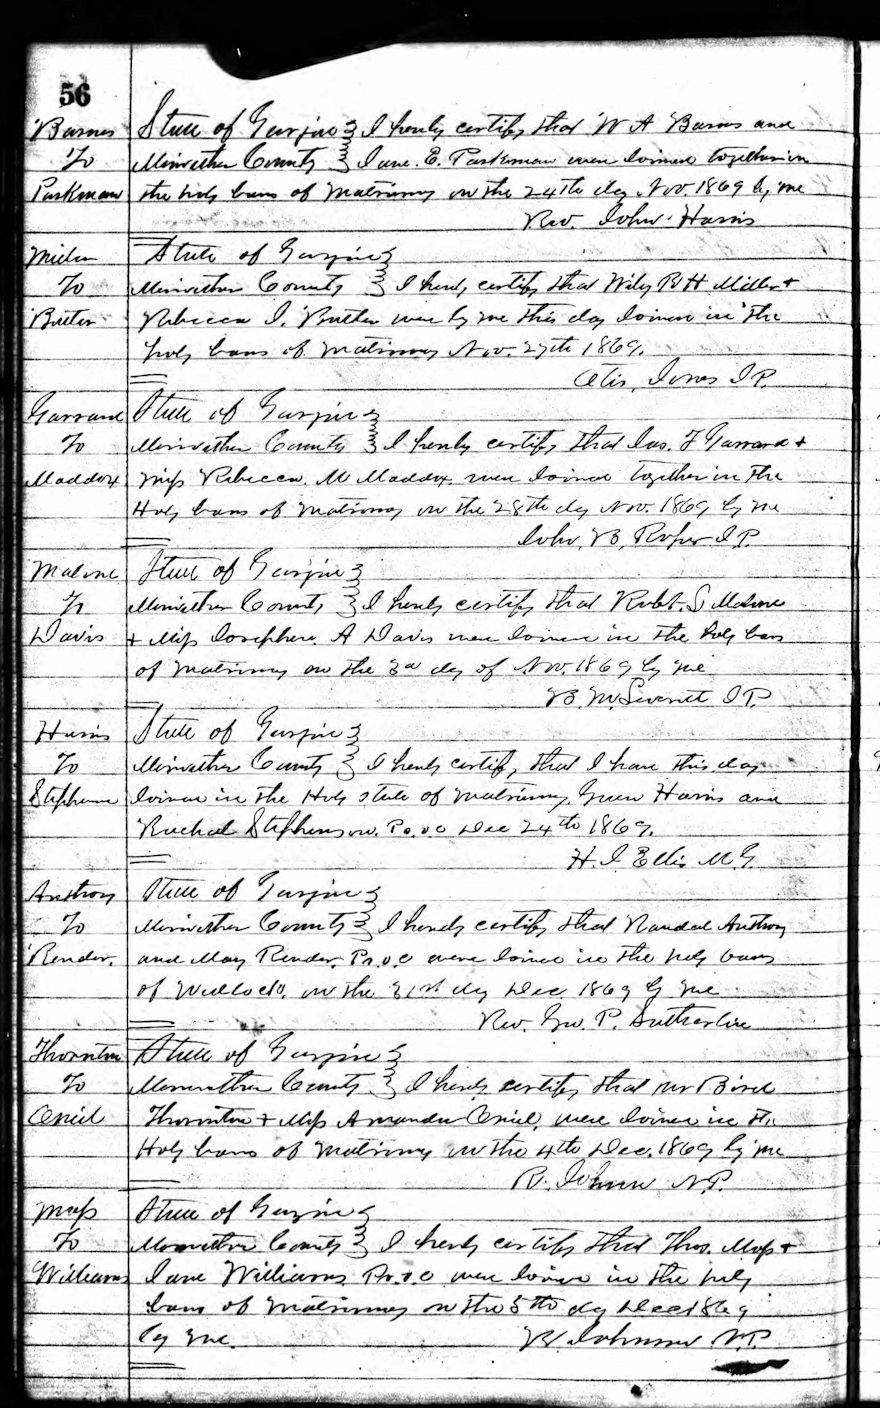 56
Barnes State of Georgia } I hereby certify that W A Barnes and
To Meriwether County } Jane. E. Parkman were joined together in
Parkman the holy bans of Matrimony on the 24th day Nov. 1869 by me
Rev. John Harris
Miller State of Georgia }
To Meriwether County } I hereby certify that Wily B H Miller +
Butler Rebecca J. Butler were by me this day joined in the
holy bans of Matrimony Nov. 27th 1869.
Otis, Jones J P.
Garrard State of Georgia }
To Meriwether County } I hereby certify that Jas. F Garrard +
Maddox Miss Rebecca. M Maddox were joined together in the
Holy bans of Matrimony on the 28th day Nov. 1869 by me
John. B, Roper J P.
Malone State of Georgia }
To Meriwether County } I hereby certify that Robt. S Malone
Davis + Miss Josephine. A Davis were joined in the holy bans
of Matrimony on the 3d day of Nov. 1869 by me
B. M. J P.
Harris State of Georgia }
To Meriwether County } I hereby certify that I have this day
Stephenson joined in the Holy state of Matrimony, Green Harris and
Rachel Stephenson. Dec 24th 1869.
H. J Ellis M G.
Anthony State of Georgia }
To Meriwether County } I hereby certify that Randal Anthony
Render. and May Render. were joined in the holy bans
of Wedlock. on the 31st day Dec 1869 by me
Rev. Geo. P. Sutherline
Thornton State of Georgia }
To Meriwether County } I hereby certify that Mr Bird
Oneil Thornton + Miss Amanda Oneil. were joined in the
Holy bans of Matrimony on the 4th Dec. 1869 by me
R. Johnson N. P.
Moss State of Georgia }
To Meriwether County } I hereby certify that Thos. Moss +
Williams Jane Williams were joined in the holy
bans of Matrimony on the 5th day Dec 1869
by me. R. Johnson N. P.